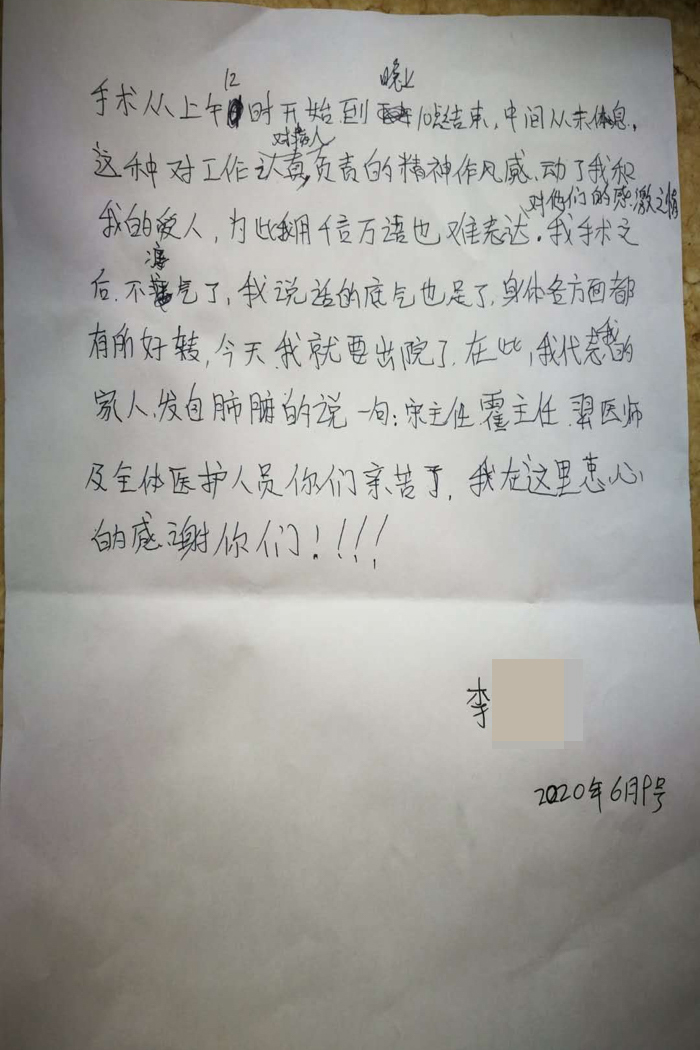 手术从上午12时开始到晚上10点结束,中间从未休息,
这种对工作认真,对病人负责的精神作风感动了我和
我的爱人,为此我用千言万语也难表达对他们的感激之情.我手术之
后.不凄气了,我说话的底气也足了,身体各方面都
有所好转,今天我就要出院了.在此,我代表我的
家人,发自肺腑的说一句:宋主任.霍主任.翟医师
及全体医护人员你们亲苦了,我在这里衷心
的感谢你们!!!!
李
2020年6月9号